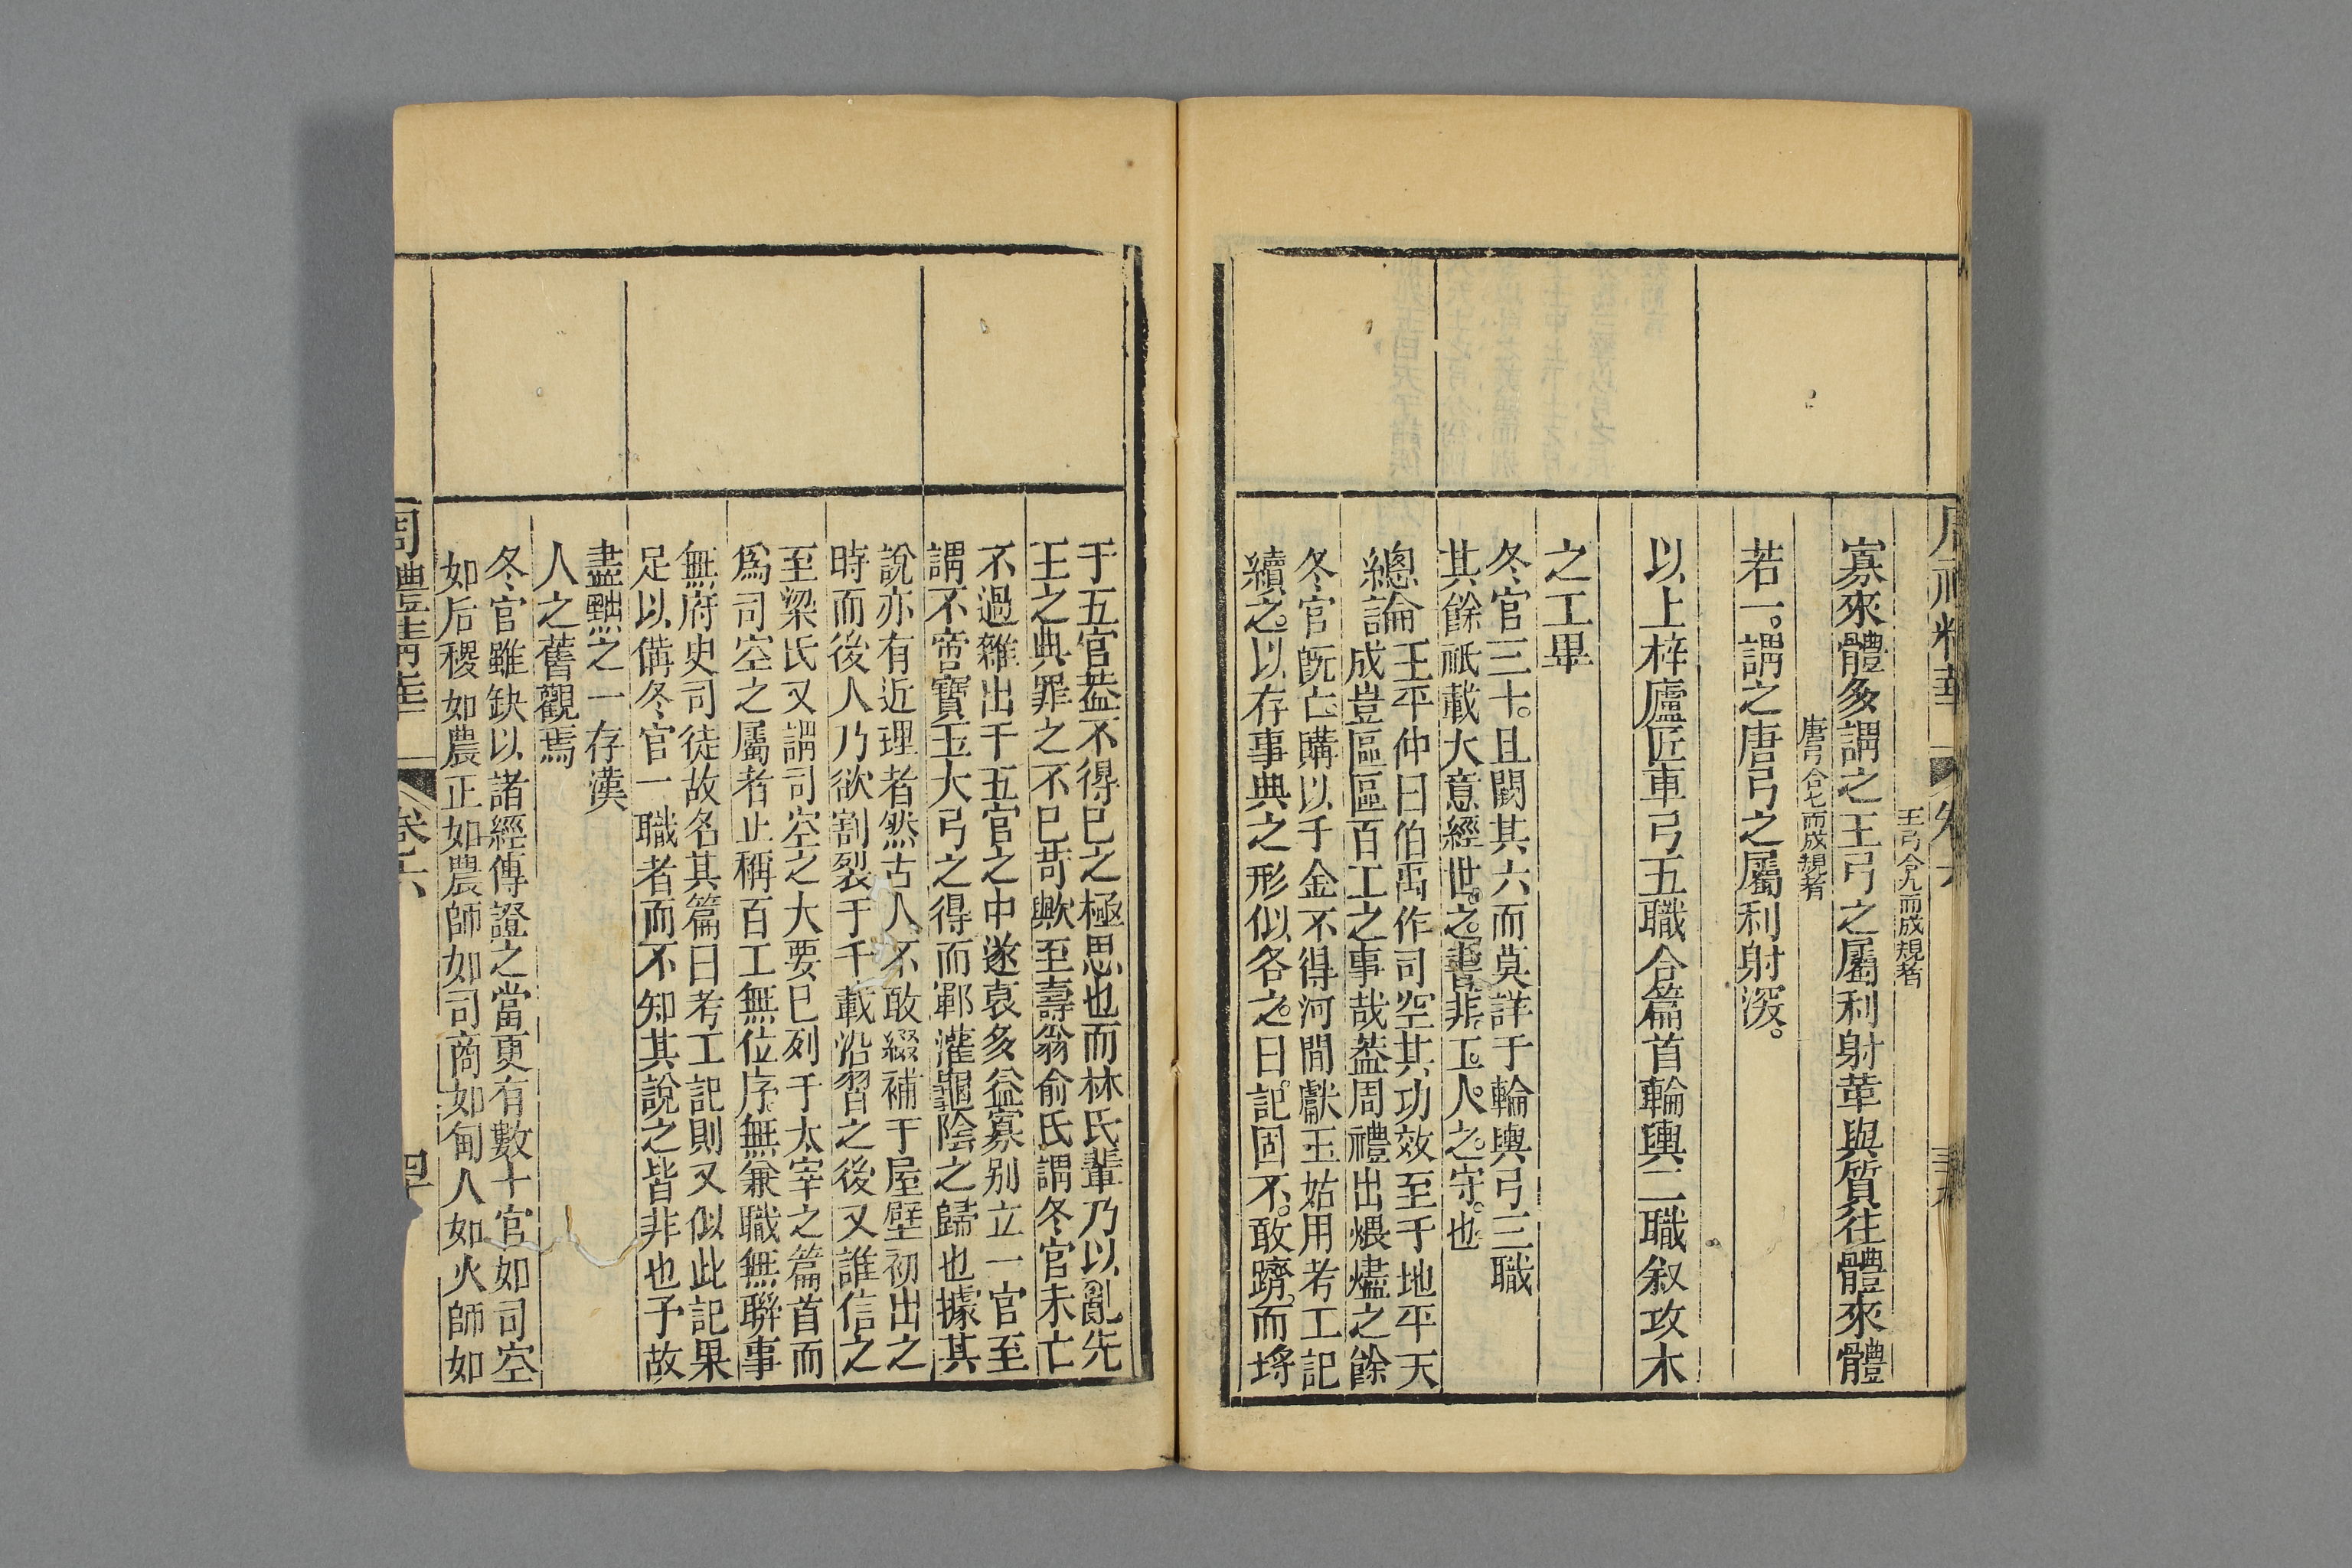 王弓合九而成規者
寡來體多謂之王弓之屬利射革與質往體來體
唐弓合七而成規者
若一謂之唐弓之屬利射深
以上梓廬匠車弓五職合篇首輪輿二職叙攻木
之工畢
冬官三十且闕其六而莫詳于輪輿弓三職
其餘祇載大意經世之書非工人之守也
總論王平仲曰伯禹作司空其功效至于地平天
成豈區區百工之事哉葢周禮出煨燼之餘
冬官旣亡購以千金不得河間獻王姑用考工記
續之以存事典之形似各之曰記固不敢躋而埓
于五官葢不得巳之極思也而林氏輩乃以亂先
王之典罪之不巳苛歟至壽翁俞氏謂冬官未亡
不過雜出于五官之中遂裒多益寡别立一官至
謂不啻寶玉大弓之得而鄆灌龜陰之歸也據其
說亦有近理者然古人不敢綴補于屋壁初出之
時而後人乃欲割裂于千載沿習之後又誰信之
至梁氏又謂司空之大要巳列于太宰之篇首而
爲司空之屬者止稱百工無位序無兼職無聯事
無府史司徒故名其篇曰考工記則又似此記果
足以俻冬官一職者而不知其說之皆非也予故
盡黜之一存漢
人之舊觀焉
冬官雖缺以諸經傳證之當更有數十官如司空
如后稷如農正如農師如司商如甸人如火師如
周禮精華 卷六 四十